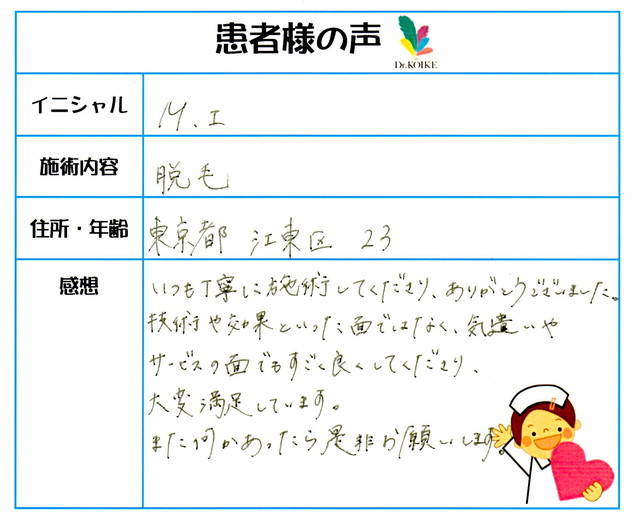 患者様の声
Dr.KOIKE
イニシャル
M.I
施術内容
脱毛
住所・年齢
東京都 江東区 23
感想
いつも丁寧に施術してくださり、ありがとうございました。
技術や効果といった面ではなく、気遣いや
サービスの面でもすごく良くしてくださり、
大変満足しています。
また何かあったら是非お願いします